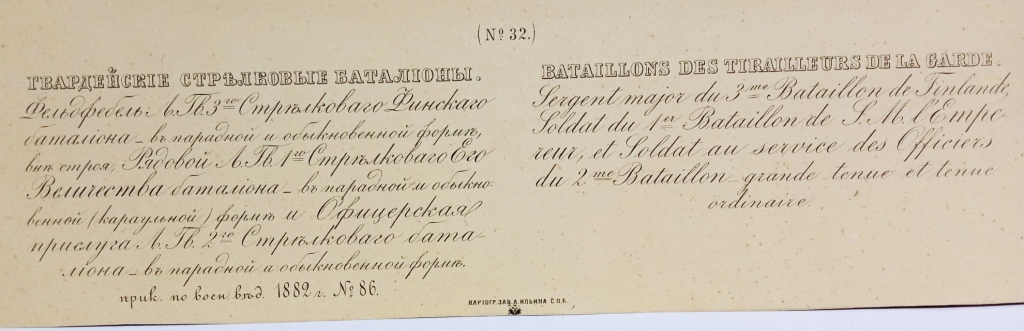 (№ 32.)
ГВАРДЕЙСКІЕ СТРѢЛКОВЫЕ БАТАЛІОНЫ.
Фельдфебель Л.Гв. 3го Стрѣлковаго Финскаго
баталіона – въ парадной и обыкновенной формѣ,
внѣ строя, Рядовой Л.Гв. 1го Стрѣлковаго Его
Величества баталіона – въ парадной и обыкно-
венной (караульной) формѣ и Офицерская
прислуга Л.Гв. 2го Стрѣлковаго бата-
ліона – въ парадной и обыкновенной формѣ.
прик. по воен. вѣд. 1882 г. № 86.
BATAILLONS DES TIRAILLEURS DE LA GARDE.
Sergent major du 3me Bataillon de Finlande,
Soldat du 1er Bataillon de S. M. l'Empe-
reur, et Soldat au service des Officiers
du 2me Bataillon grande tenue et tenue
ordinaire.
КАРТОГР. ЗАВ. А. ИЛЬИНА С.П.Б.